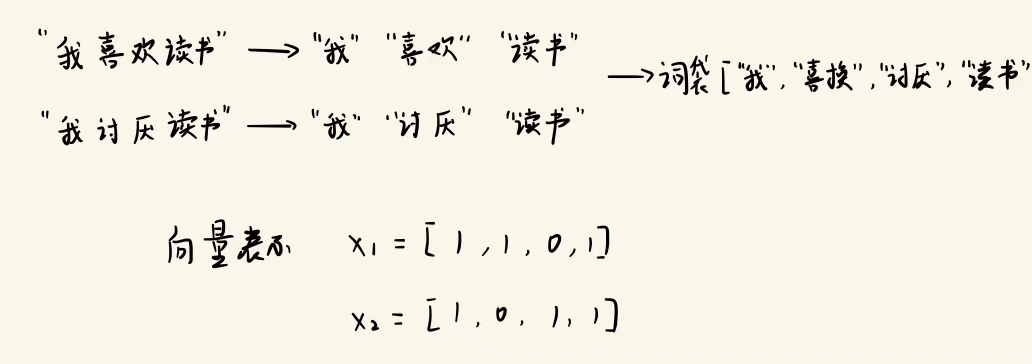 "我喜欢读书" → "我" "喜欢" "读书"
→ 词袋 ["我", "喜换", "讨厌", "读书"
"我讨厌读书" → "我" "讨厌" "读书"
向量表示 x₁ = [1, 1, 0, 1]
x₂ = [1, 0, 1, 1]